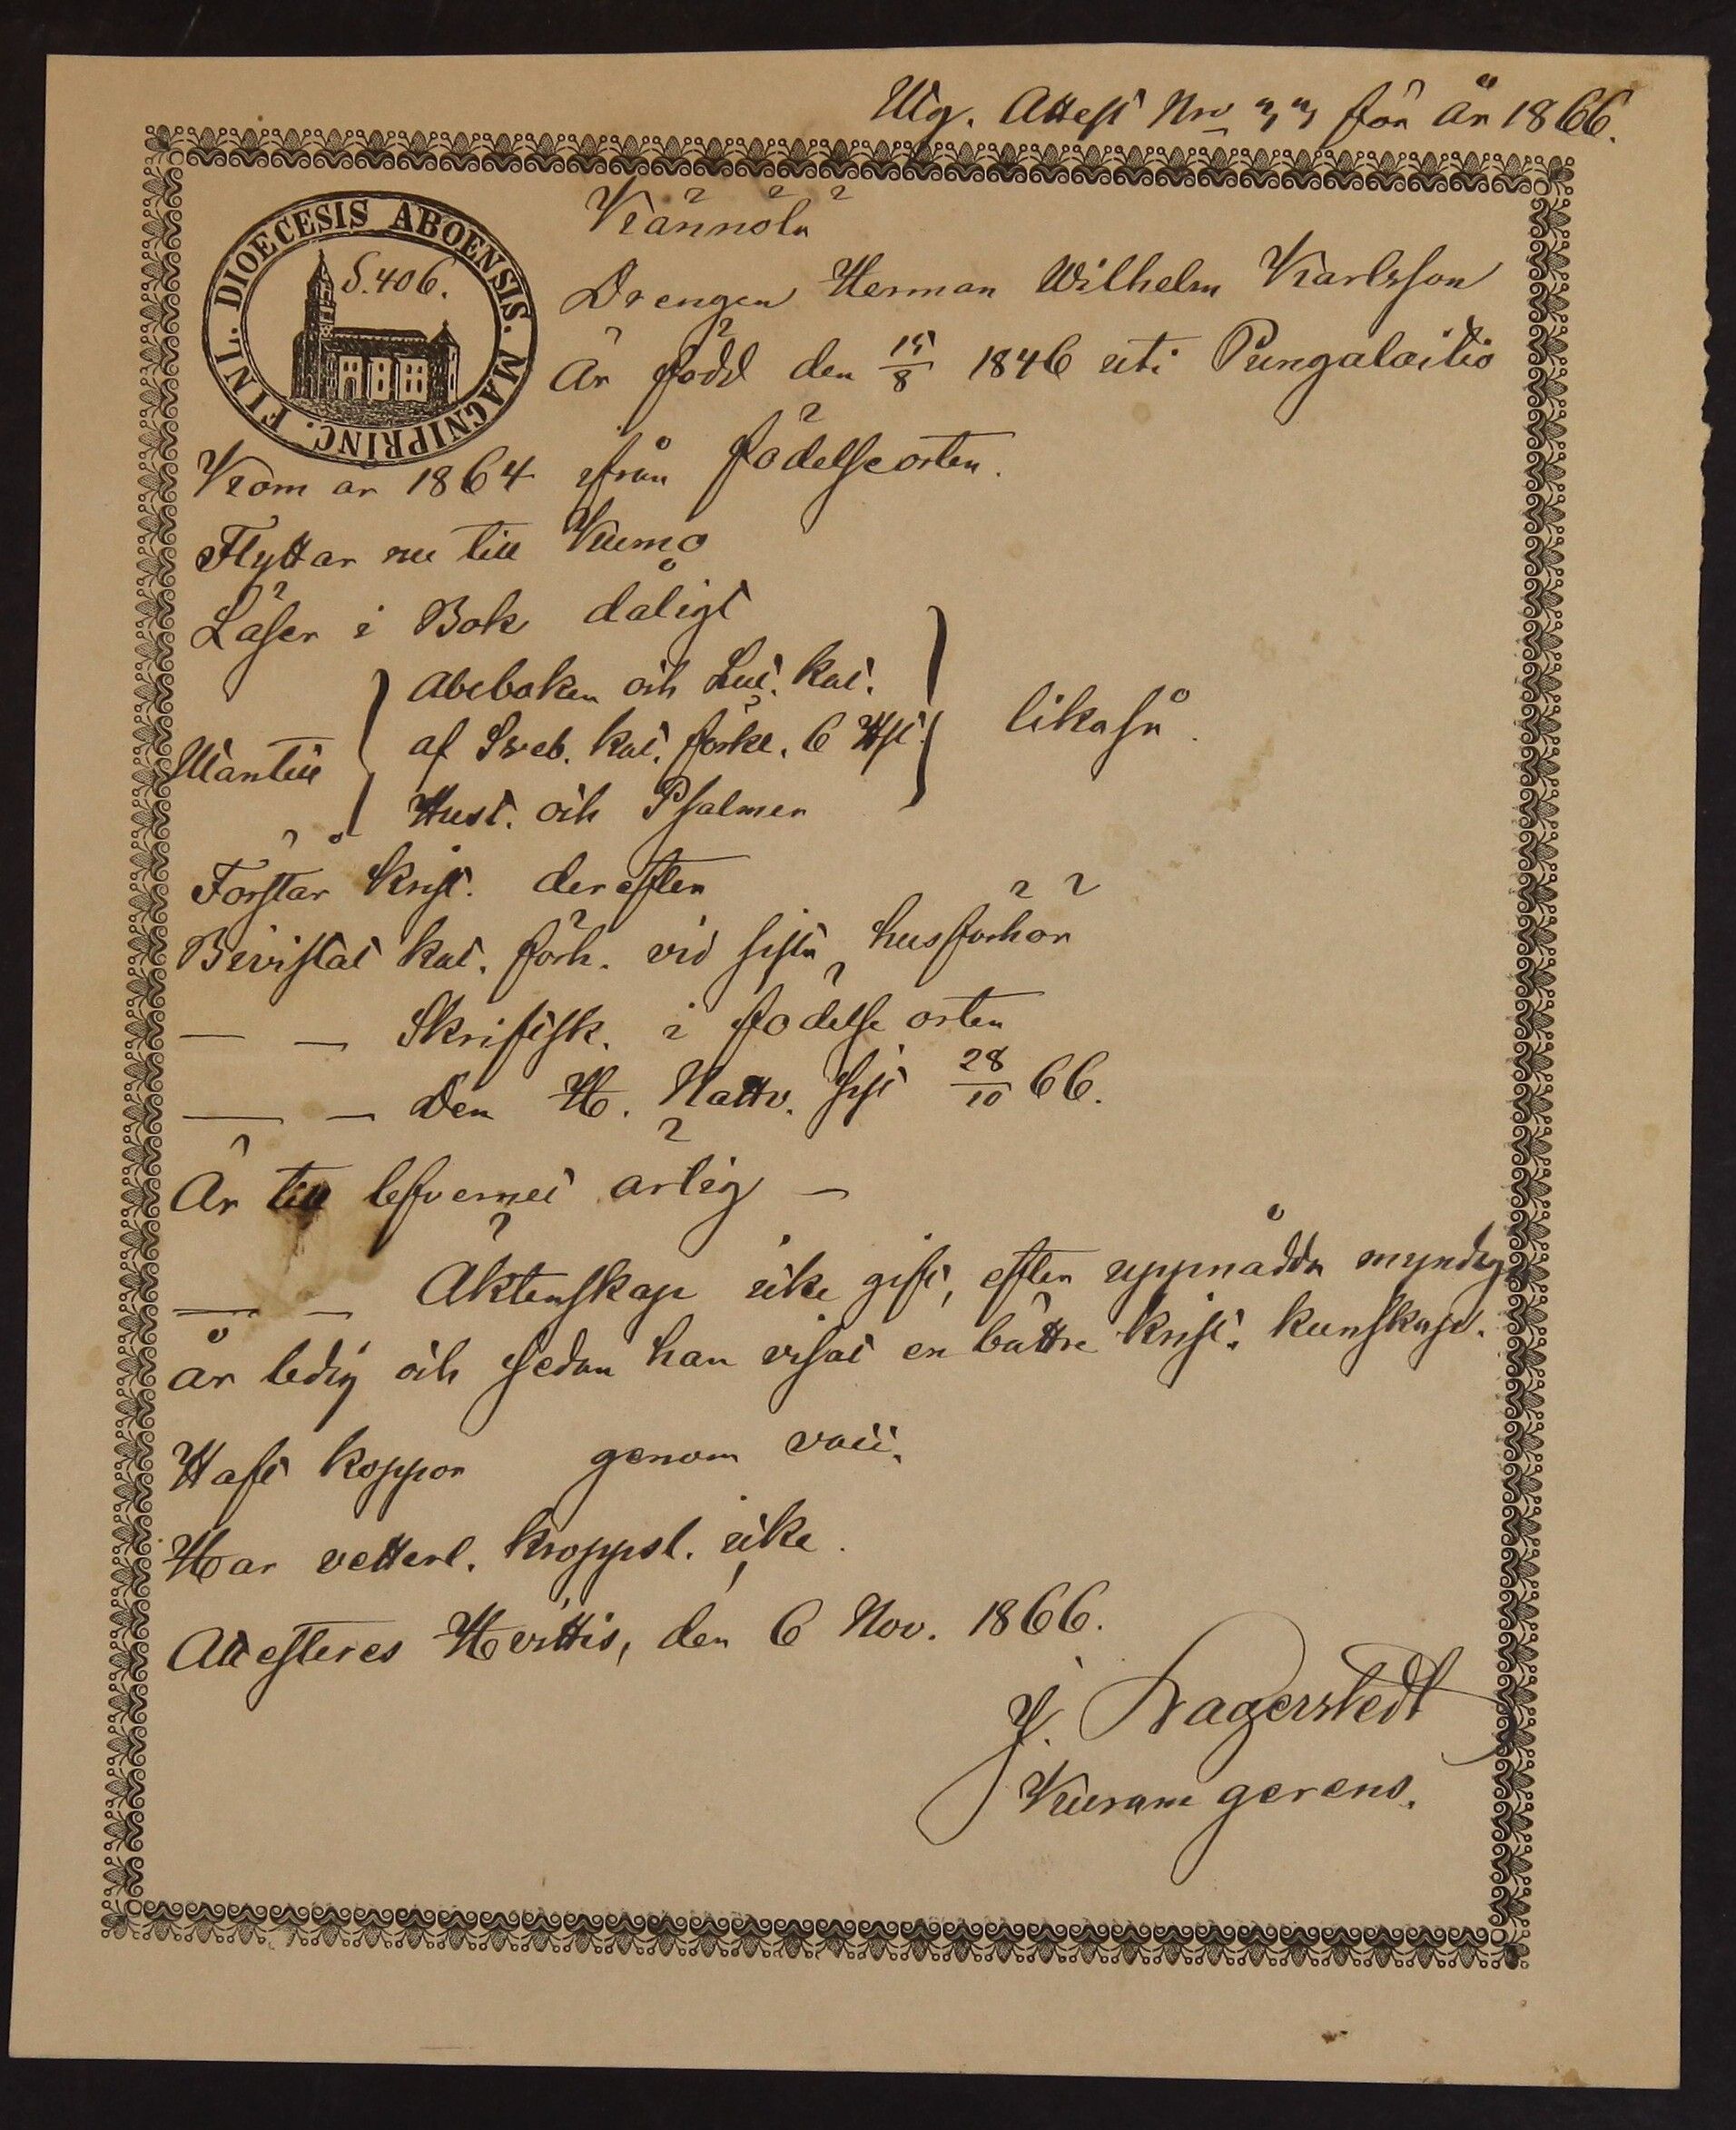 Utg. Attest Nro 33 för år 1866.
DIOECESIS ABOENSIS. MAGNIPRINC. FINL.
S. 406.
Kännölä
Drengen Herman Wilhelm Karlsson
Är född den 15/8 1846 uti Pungalaitio
Kom år 1864 ifrån födelseorten.
Flyttar nu till Kumo
Läser i Bok dåligt
Utantill
Abcboken och Lut. kat.
af Sveb. kat. förkl. 6 Hst.
Hust. och Psalmer
likaså.
Förstår krist. derefter
Bivistat kat. förh. vid sista husförhör
— — Skriftsk. i födelse orten
— — Den H. Nattv. sist 28/10 66.
Är till lefvernet ärlig —
— — Äktenskap icke gift, efter uppnådda myndig
år ledig och sedan han visat en bättre krist. kunskap.
Haft koppor genom vacc.
Har vetterl. kroppsl. icke.
Attesteres Hvittis, den 6 Nov. 1866.
J. Lagerstedt
Kuram gerens.